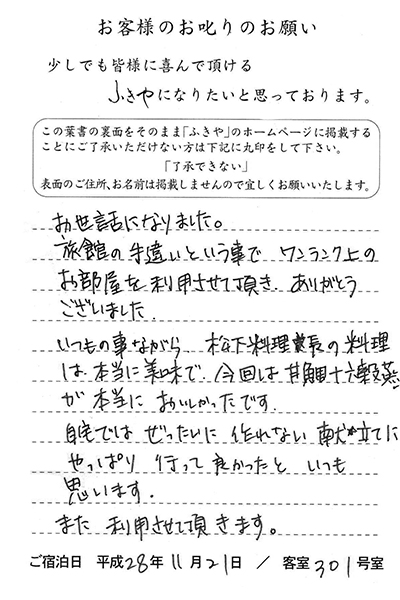 お客様のお叱りのお願い
少しでも皆様に喜んで頂ける
ふきやになりたいと思っております。
この葉書の裏面をそのまま「ふきや」のホームページに掲載する
ことにご了承いただけない方は下記に丸印をして下さい。
「了承できない」
表面のご住所、お名前は掲載しませんので宜しくお願いいたします。
お世話になりました。
旅館の手違いという事で ワンランク上の
お部屋を利用させて頂き、ありがとう
ございました。
いつもの事ながら、松下料理長の料理
は本当に美味で、今回は甘鯛十六穀蒸し
が本当においしかったです。
自宅では ぜったいに 作れない 献立に
やっぱり 行って 良かったと いつも
思います。
また 利用させて頂きます。
ご宿泊日 平成28年11月21日 / 客室301号室